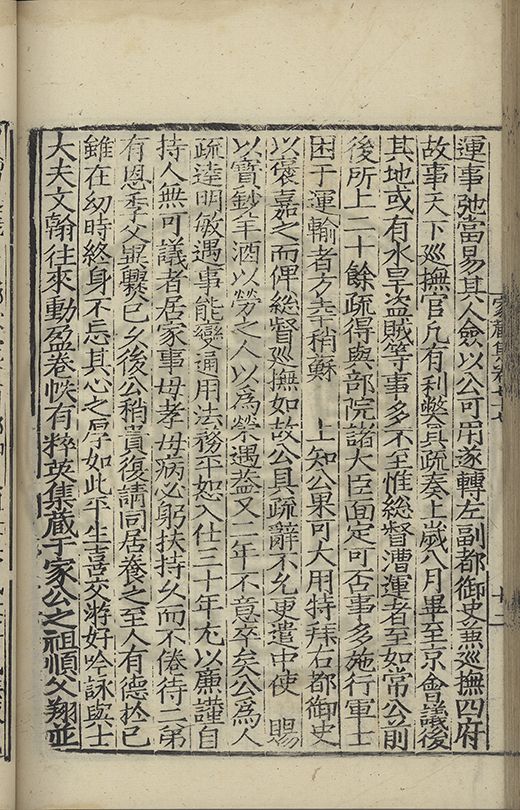 運事弛當易其人僉以公可用遂轉左副都御史兼巡撫四府
故事天下巡撫官凡有利弊具疏奏上歲八月畢至京會議後
其地或有水旱盗賊等事多不至惟総督漕運者至如常公前
後所上二十餘疏得與部院諸大臣面定可否事多施行軍士
困于運輸者方幸稍蘇　上知公果可大用特拜右都御史
以褒嘉之而俾総督巡撫如故公具疏辭不允更遣中使　賜
以寳鈔羊酒以勞之人以為榮遇葢又二年不意卒矣公為人
疏達明敏遇事能變通用法務平恕入仕三十年尤以廉謹自
持人無可議者居家事母孝母病必躬扶持久而不倦待二弟
有恩季父異爨已久後公稍貴復請同居養之至人有德於已
雖在幼時終身不忘其心之厚如此平生喜交游好吟詠與士
大夫文翰往來動盈卷帙有粹英集藏于家公之祖順父翔並
家藏集卷七七
十二